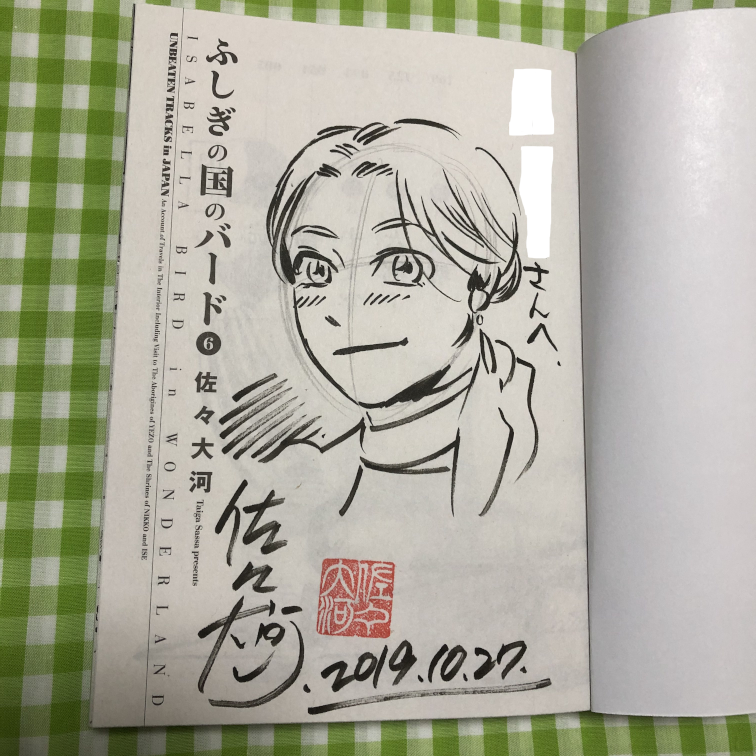 さんへ.
ふしぎの国のバード❻ 佐々大河
Taiga Sassa presents
ISABELLA BIRD in WONDERLAND
UNBEATEN TRACKS in JAPAN An Account of Travels in The Interior Including Visit to The Aborigines of YEZO and The Shrines of NIKKO and ISE
佐々大河.
佐々大河
2019.10.27.